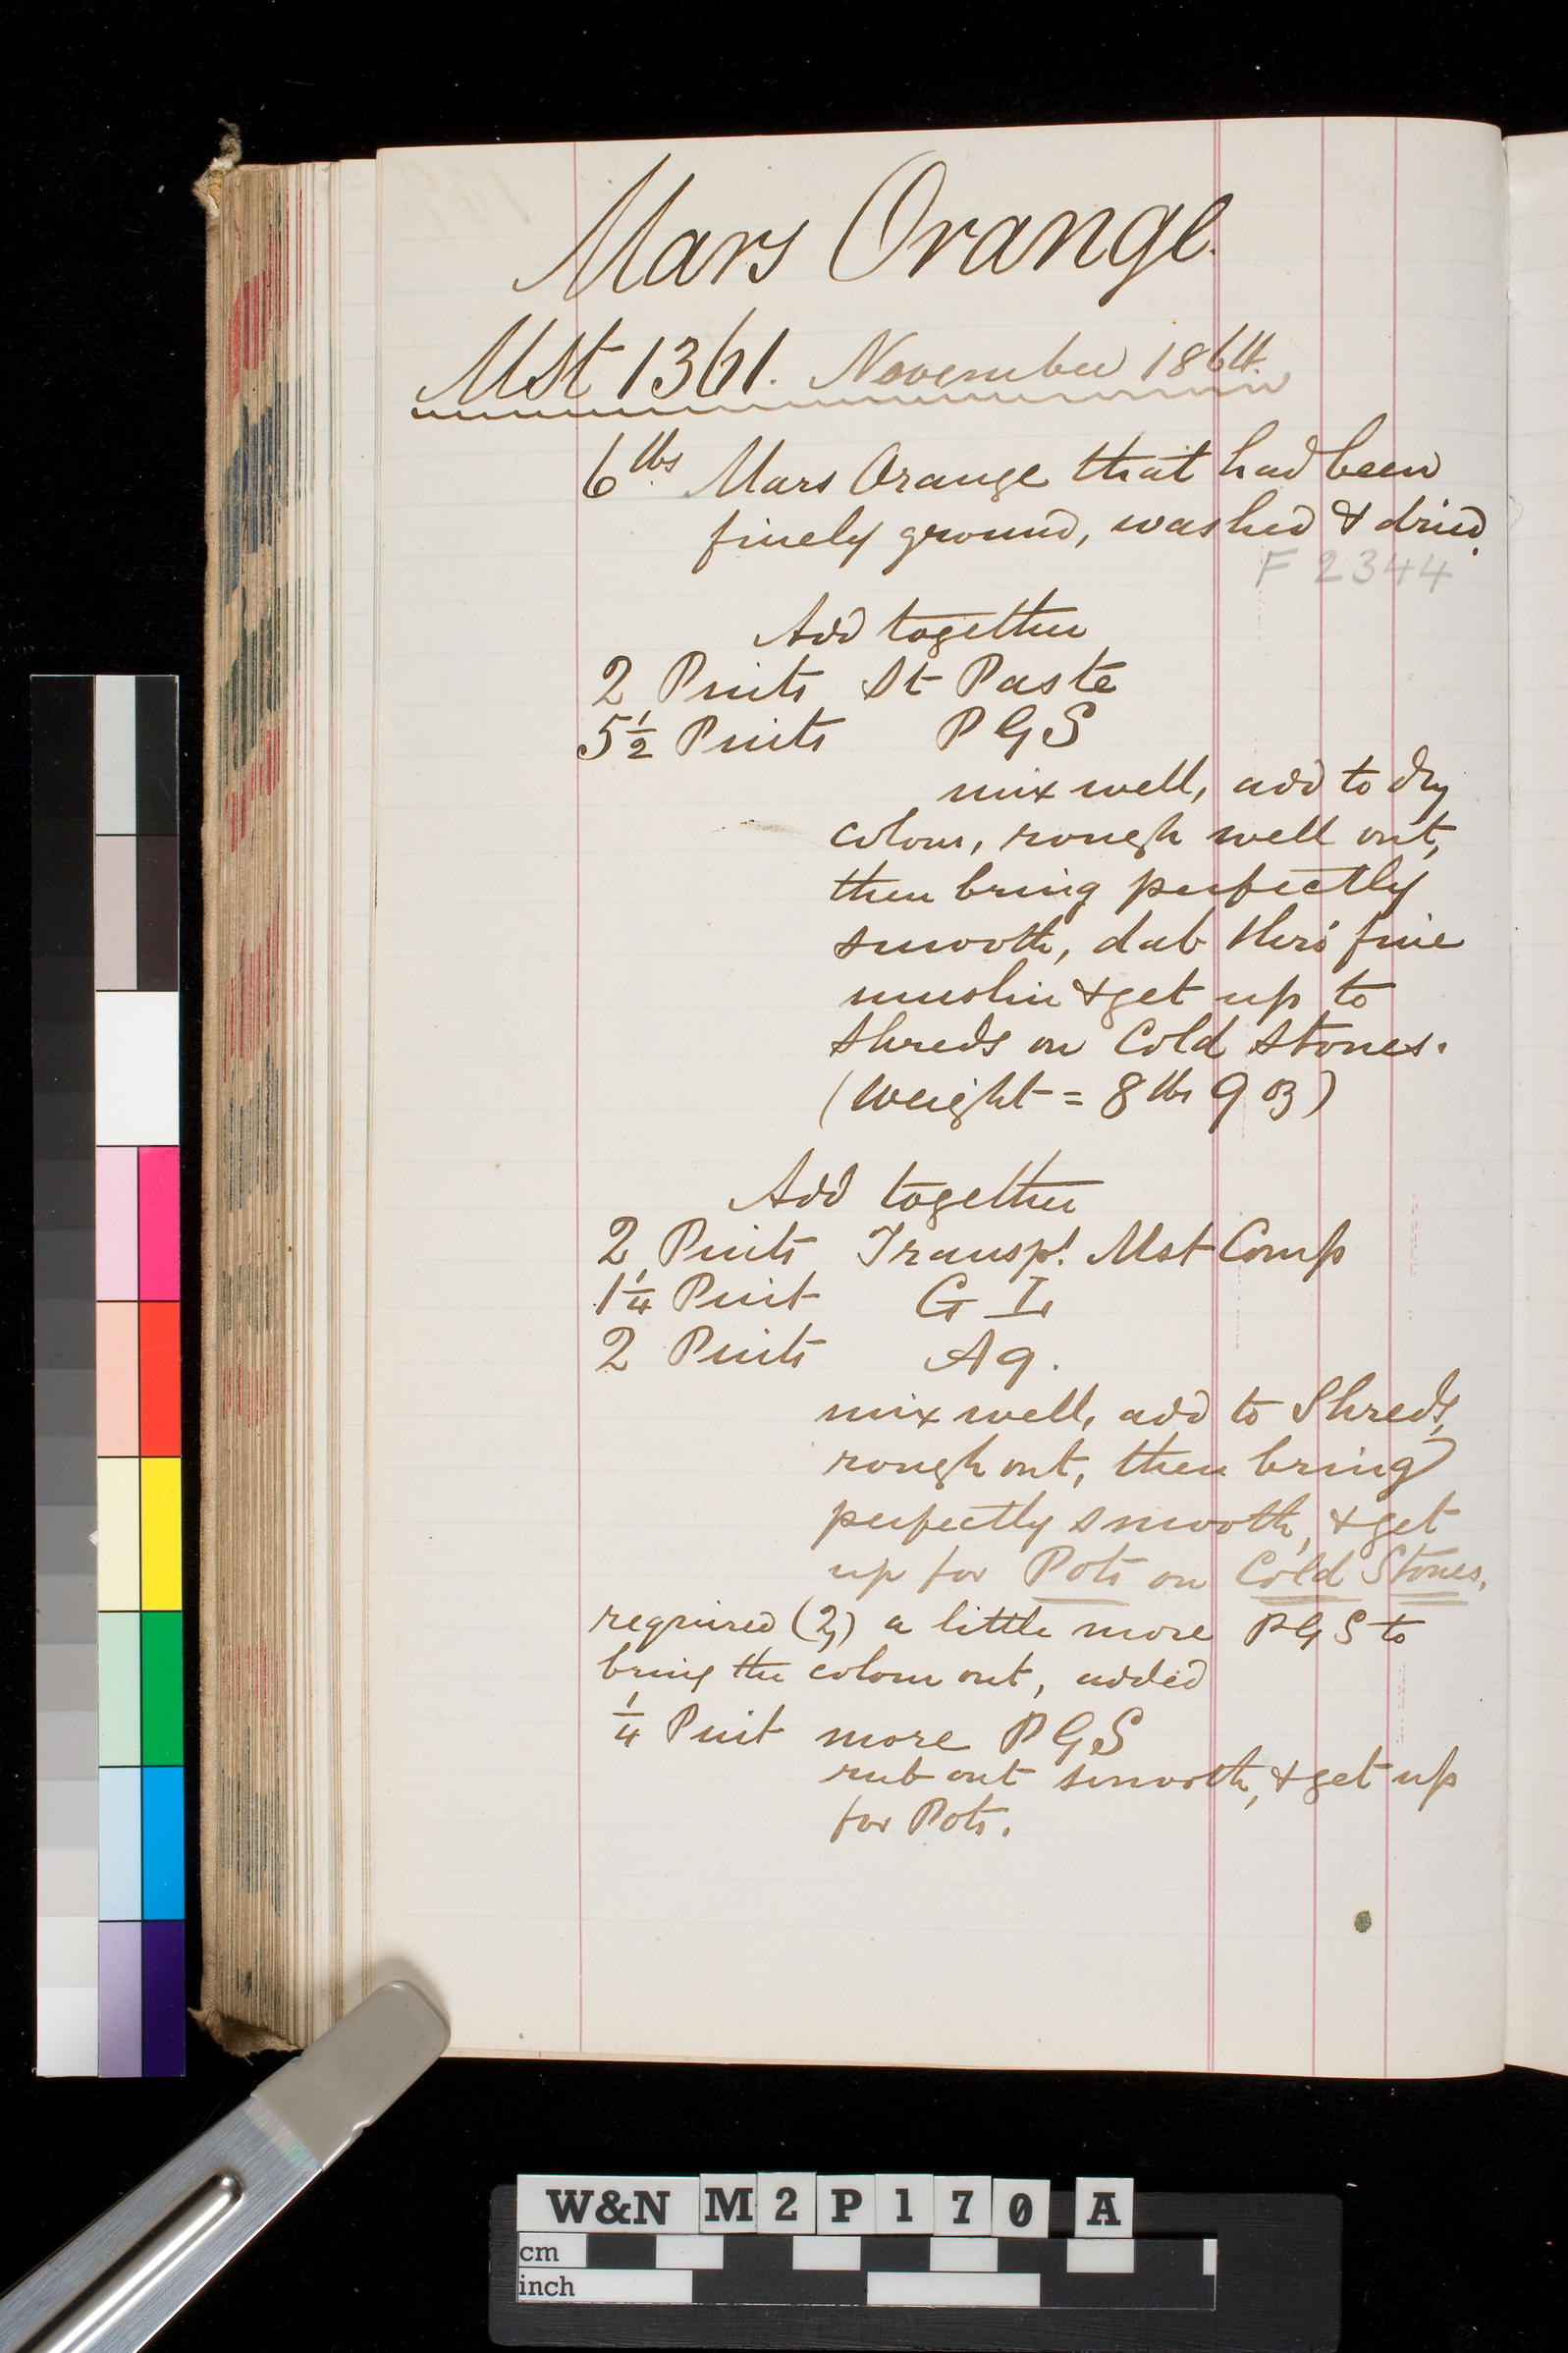 Mars Orange.
Mst 1361. November 1864.
6 lbs. Mars Orange that had been
finely ground, washed & dried.
F 2344
Add together
2 Pints St Paste
5 1/2 Pints P G S
mix well, add to dry
colour, rough well out,
then bring perfectly
smooth, dab thro' fine
muslin & get up to
shreds on Cold Stones.
(Weight = 8 lbs 9 oz)
Add together
2 Pints Transpt. Mst Comp
1 1/4 Pint G I
2 Pints Aq.
mix well, add to Shreds,
rough out, then bring
perfectly smooth, & get
up for Pots on Cold Stones.
required (2,) a little more PGS to
bring the colour out, added
1/4 Pint more P G S
rub out smooth, & get up
for Pots.
W&N M2P170 A
cm
inch